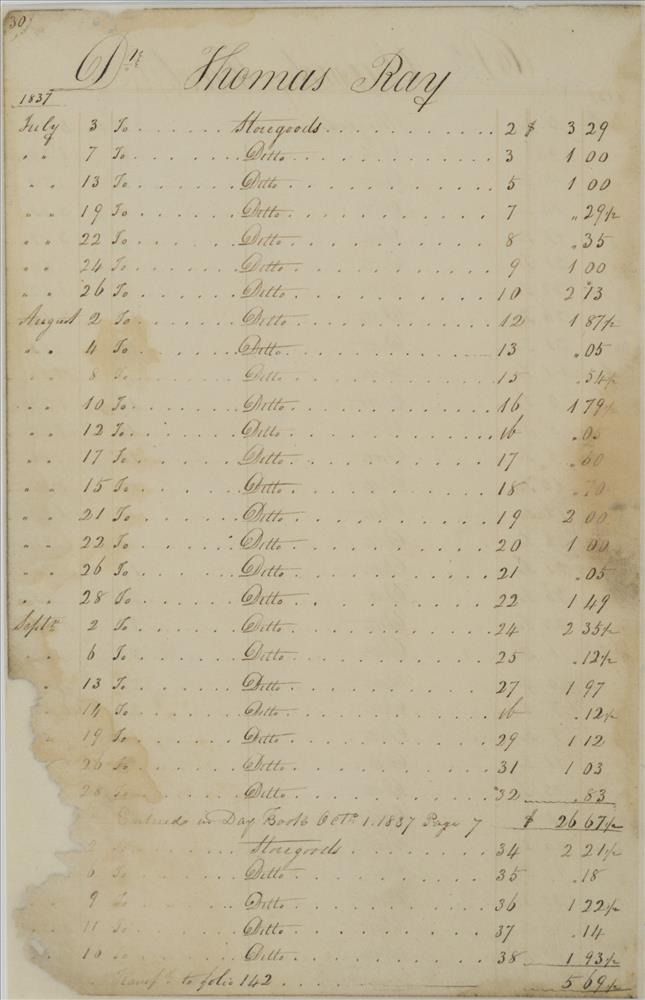 30
Dr. Thomas Ray
1837
July 3 To Storegoods 2 $ 3 29
" " 7 To Ditto 3 1 00
" " 13 To Ditto 5 1 00
" " 19 To Ditto 7 " 29½
" " 22 To Ditto 8 " 35
" " 24 To Ditto 9 1 00
" " 26 To Ditto 10 2 13
August 2 To Ditto 12 1 87½
" " 4 To Ditto 13 " 05
8 To Ditto 15 " 54½
" " 10 To Ditto 16 1 79½
" " 12 To Ditto ib " 05
" " 17 To Ditto 17 " 60
" " 15 To Ditto 18 " 70
" " 21 To Ditto 19 2 00
" " 22 To Ditto 20 1 00
" " 26 To Ditto 21 " 05
" " 28 To Ditto 22 1 49
Septr. 2 To Ditto 24 2 35½
" " 6 To Ditto 25 " 12½
" 13 To Ditto 27 1 97
14 To Ditto ib " 12½
19 To Ditto 29 1 12
26 To Ditto 31 1 03
28 To Ditto 32 " 83
in Day Book Octr. 1. 1837 Page 7 $ 26 67½
2 To Storegoods 34 2 21½
6 To Ditto 35 " 18
9 To Ditto 36 1 22½
11 To Ditto 37 " 14
Ditto 38 1 93½
to folio 142 5 69½